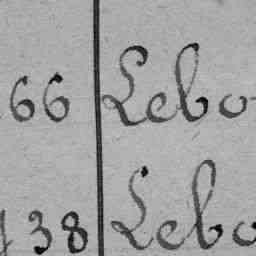 66 Lebo
38 Lebo